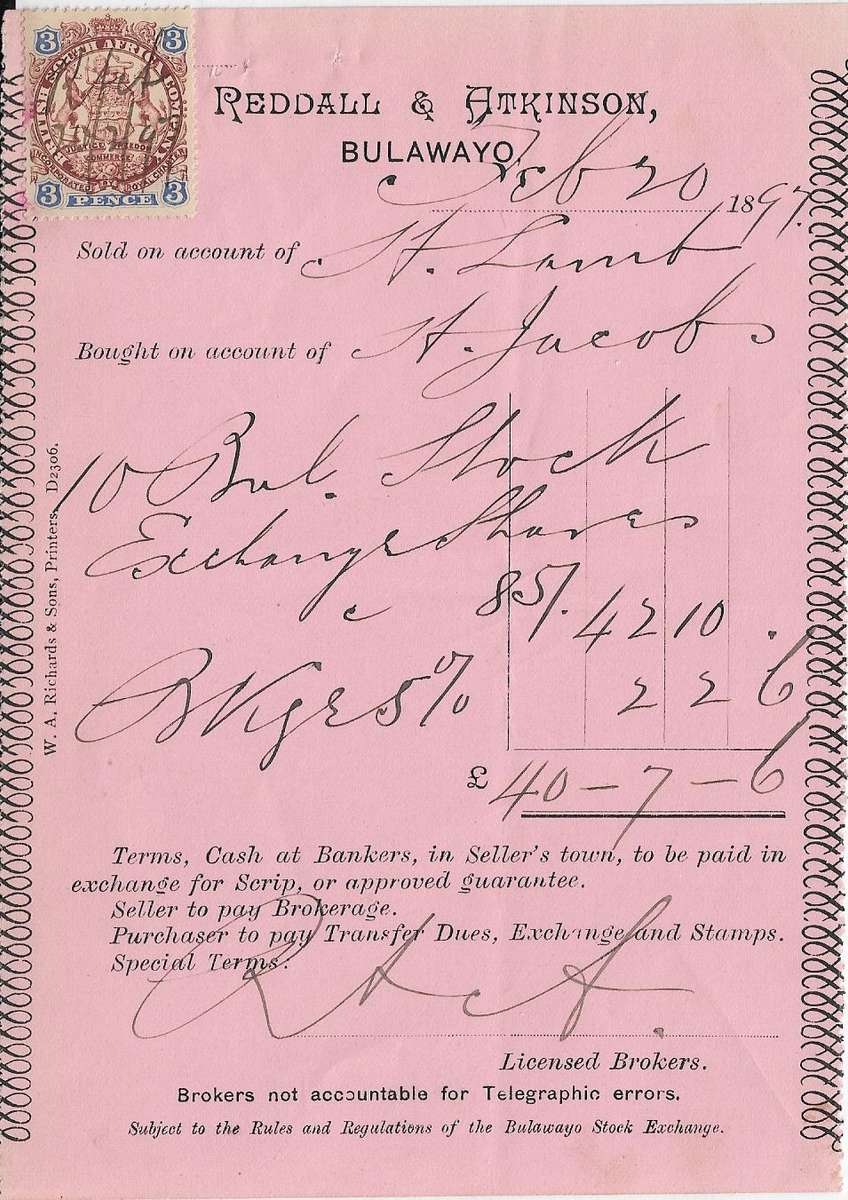 3 3
BRITISH SOUTH AFRICA COMPANY
JUSTICE FREEDOM
COMMERCE
INCORPORATED BY ROYAL CHARTER
3 PENCE 3
REDDALL & ATKINSON,
BULAWAYO,
Feb 20 1897.
Sold on account of H. Lamb
Bought on account of H. Jacobs
10 Bul. Stock
Exchange Shares
85/. 42 10 .
Bkge 5% 2 2 6
£ 40 - 7 - 6
Terms, Cash at Bankers, in Seller's town, to be paid in
exchange for Scrip, or approved guarantee.
Seller to pay Brokerage.
Purchaser to pay Transfer Dues, Exchange and Stamps.
Special Terms:
R & A.
Licensed Brokers.
Brokers not accountable for Telegraphic errors.
Subject to the Rules and Regulations of the Bulawayo Stock Exchange.
W. A. Richards & Sons, Printers. D2306.